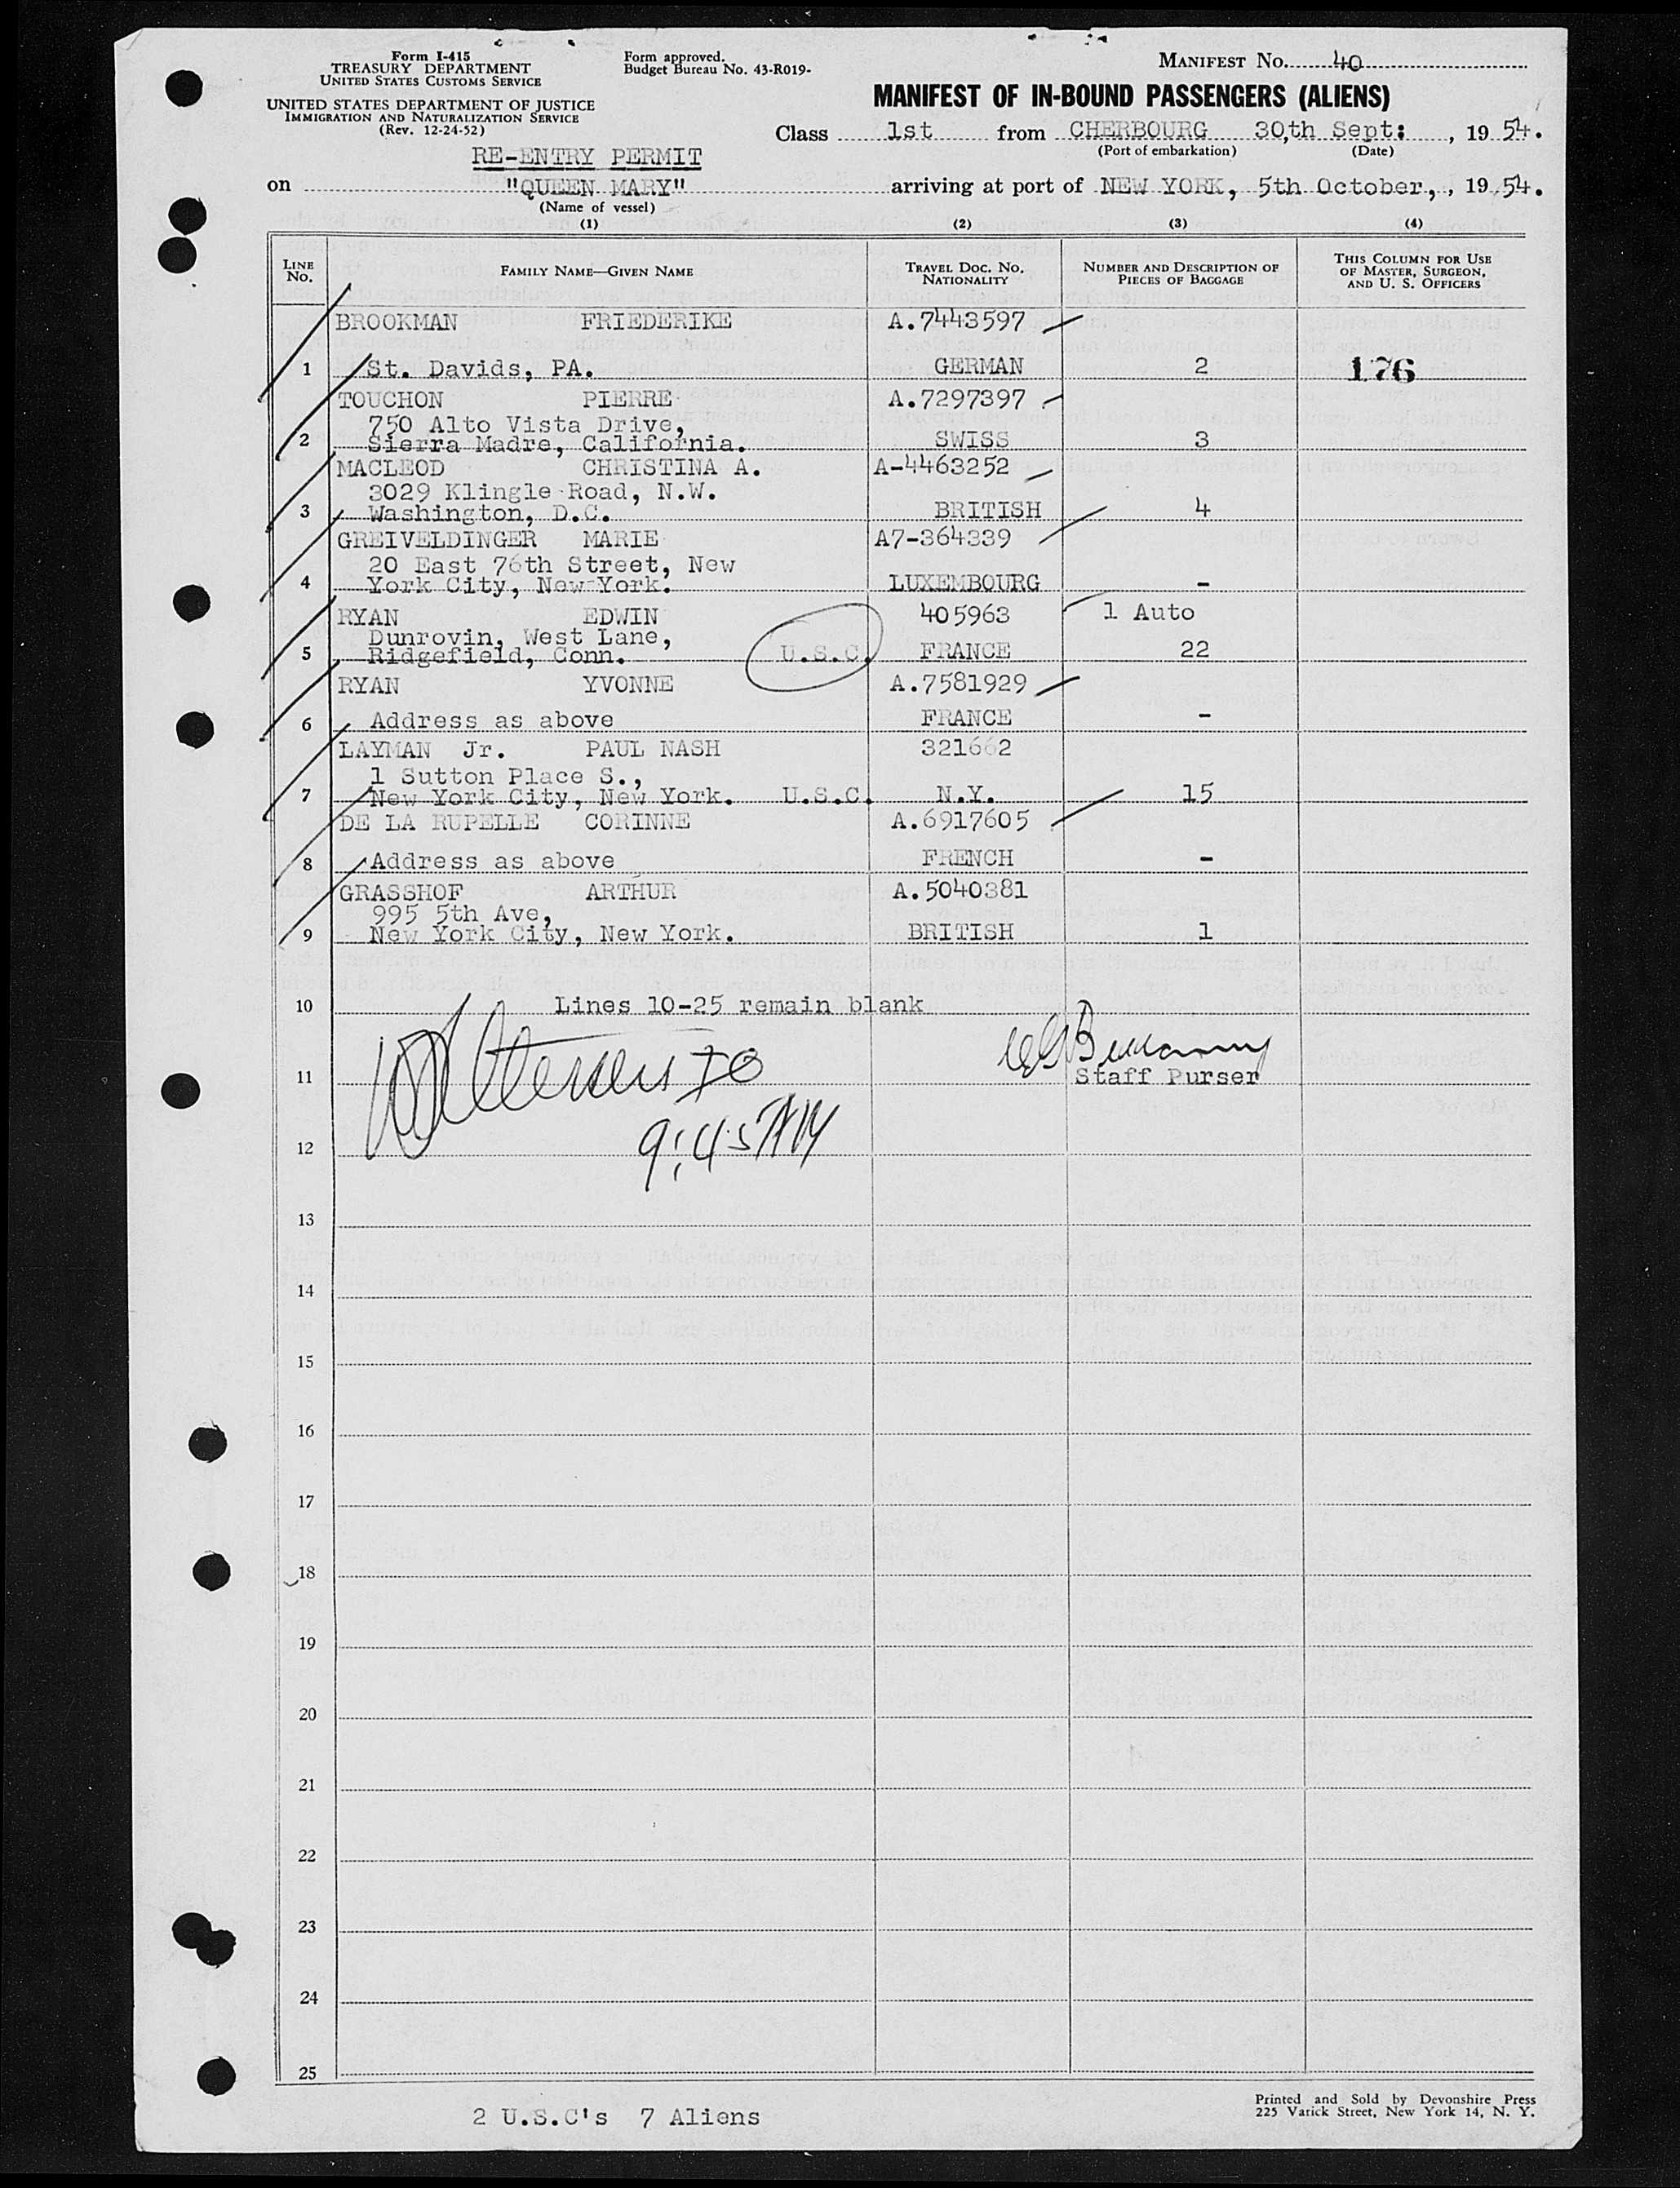 Form I-415
TREASURY DEPARTMENT
UNITED STATES CUSTOMS SERVICE
UNITED STATES DEPARTMENT OF JUSTICE
IMMIGRATION AND NATURALIZATION SERVICE
(Rev. 12-24-52)
Form approved.
Budget Bureau No. 43-R019-
MANIFEST No. 40
MANIFEST OF IN-BOUND PASSENGERS (ALIENS)
Class 1st from CHERBOURG 30,th Sept: , 19 54.
(Port of embarkation) (Date)
RE-ENTRY PERMIT
on "QUEEN MARY" arriving at port of NEW YORK, 5th October, , 19 54.
(Name of vessel)
(1) (2) (3) (4)
LINE No. FAMILY NAME—GIVEN NAME TRAVEL DOC. NO. NATIONALITY NUMBER AND DESCRIPTION OF PIECES OF BAGGAGE THIS COLUMN FOR USE OF MASTER, SURGEON, AND U. S. OFFICERS
BROOKMAN FRIEDERIKE A.7443597
1 St. Davids, PA. GERMAN 2 176
TOUCHON PIERRE A.7297397
750 Alto Vista Drive,
2 Sierra Madre, California. SWISS 3
MACLEOD CHRISTINA A. A-4463252
3029 Klingle Road, N.W.
3 Washington, D.C. BRITISH 4
GREIVELDINGER MARIE A7-364339
20 East 76th Street, New
4 York City, New York. LUXEMBOURG -
RYAN EDWIN 405963 1 Auto
Dunrovin, West Lane,
5 Ridgefield, Conn. U.S.C. FRANCE 22
RYAN YVONNE A.7581929
6 Address as above FRANCE -
LAYMAN Jr. PAUL NASH 321662
1 Sutton Place S.,
7 New York City, New York. U.S.C. N.Y. 15
DE LA RUPELLE CORINNE A.6917605
8 Address as above FRENCH -
GRASSHOF ARTHUR A.5040381
995 5th Ave,
9 New York City, New York. BRITISH 1
10 Lines 10-25 remain blank
11 Staff Purser
9:45 AM
12
13
14
15
16
17
18
19
20
21
22
23
24
25
Printed and Sold by Devonshire Press
225 Varick Street, New York 14, N. Y.
2 U.S.C's 7 Aliens